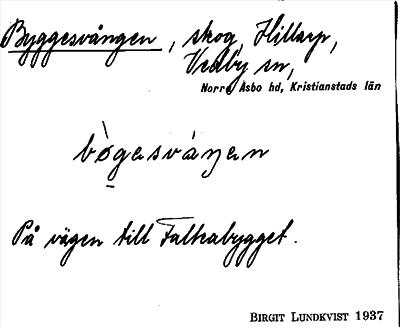 Byggesvången, skog, Hillarp,
Vedby sn,
Norra Åsbo hd, Kristianstads län
bògasváŋan
På vägen till Faltcabygget.
BIRGIT LUNDKVIST 1937